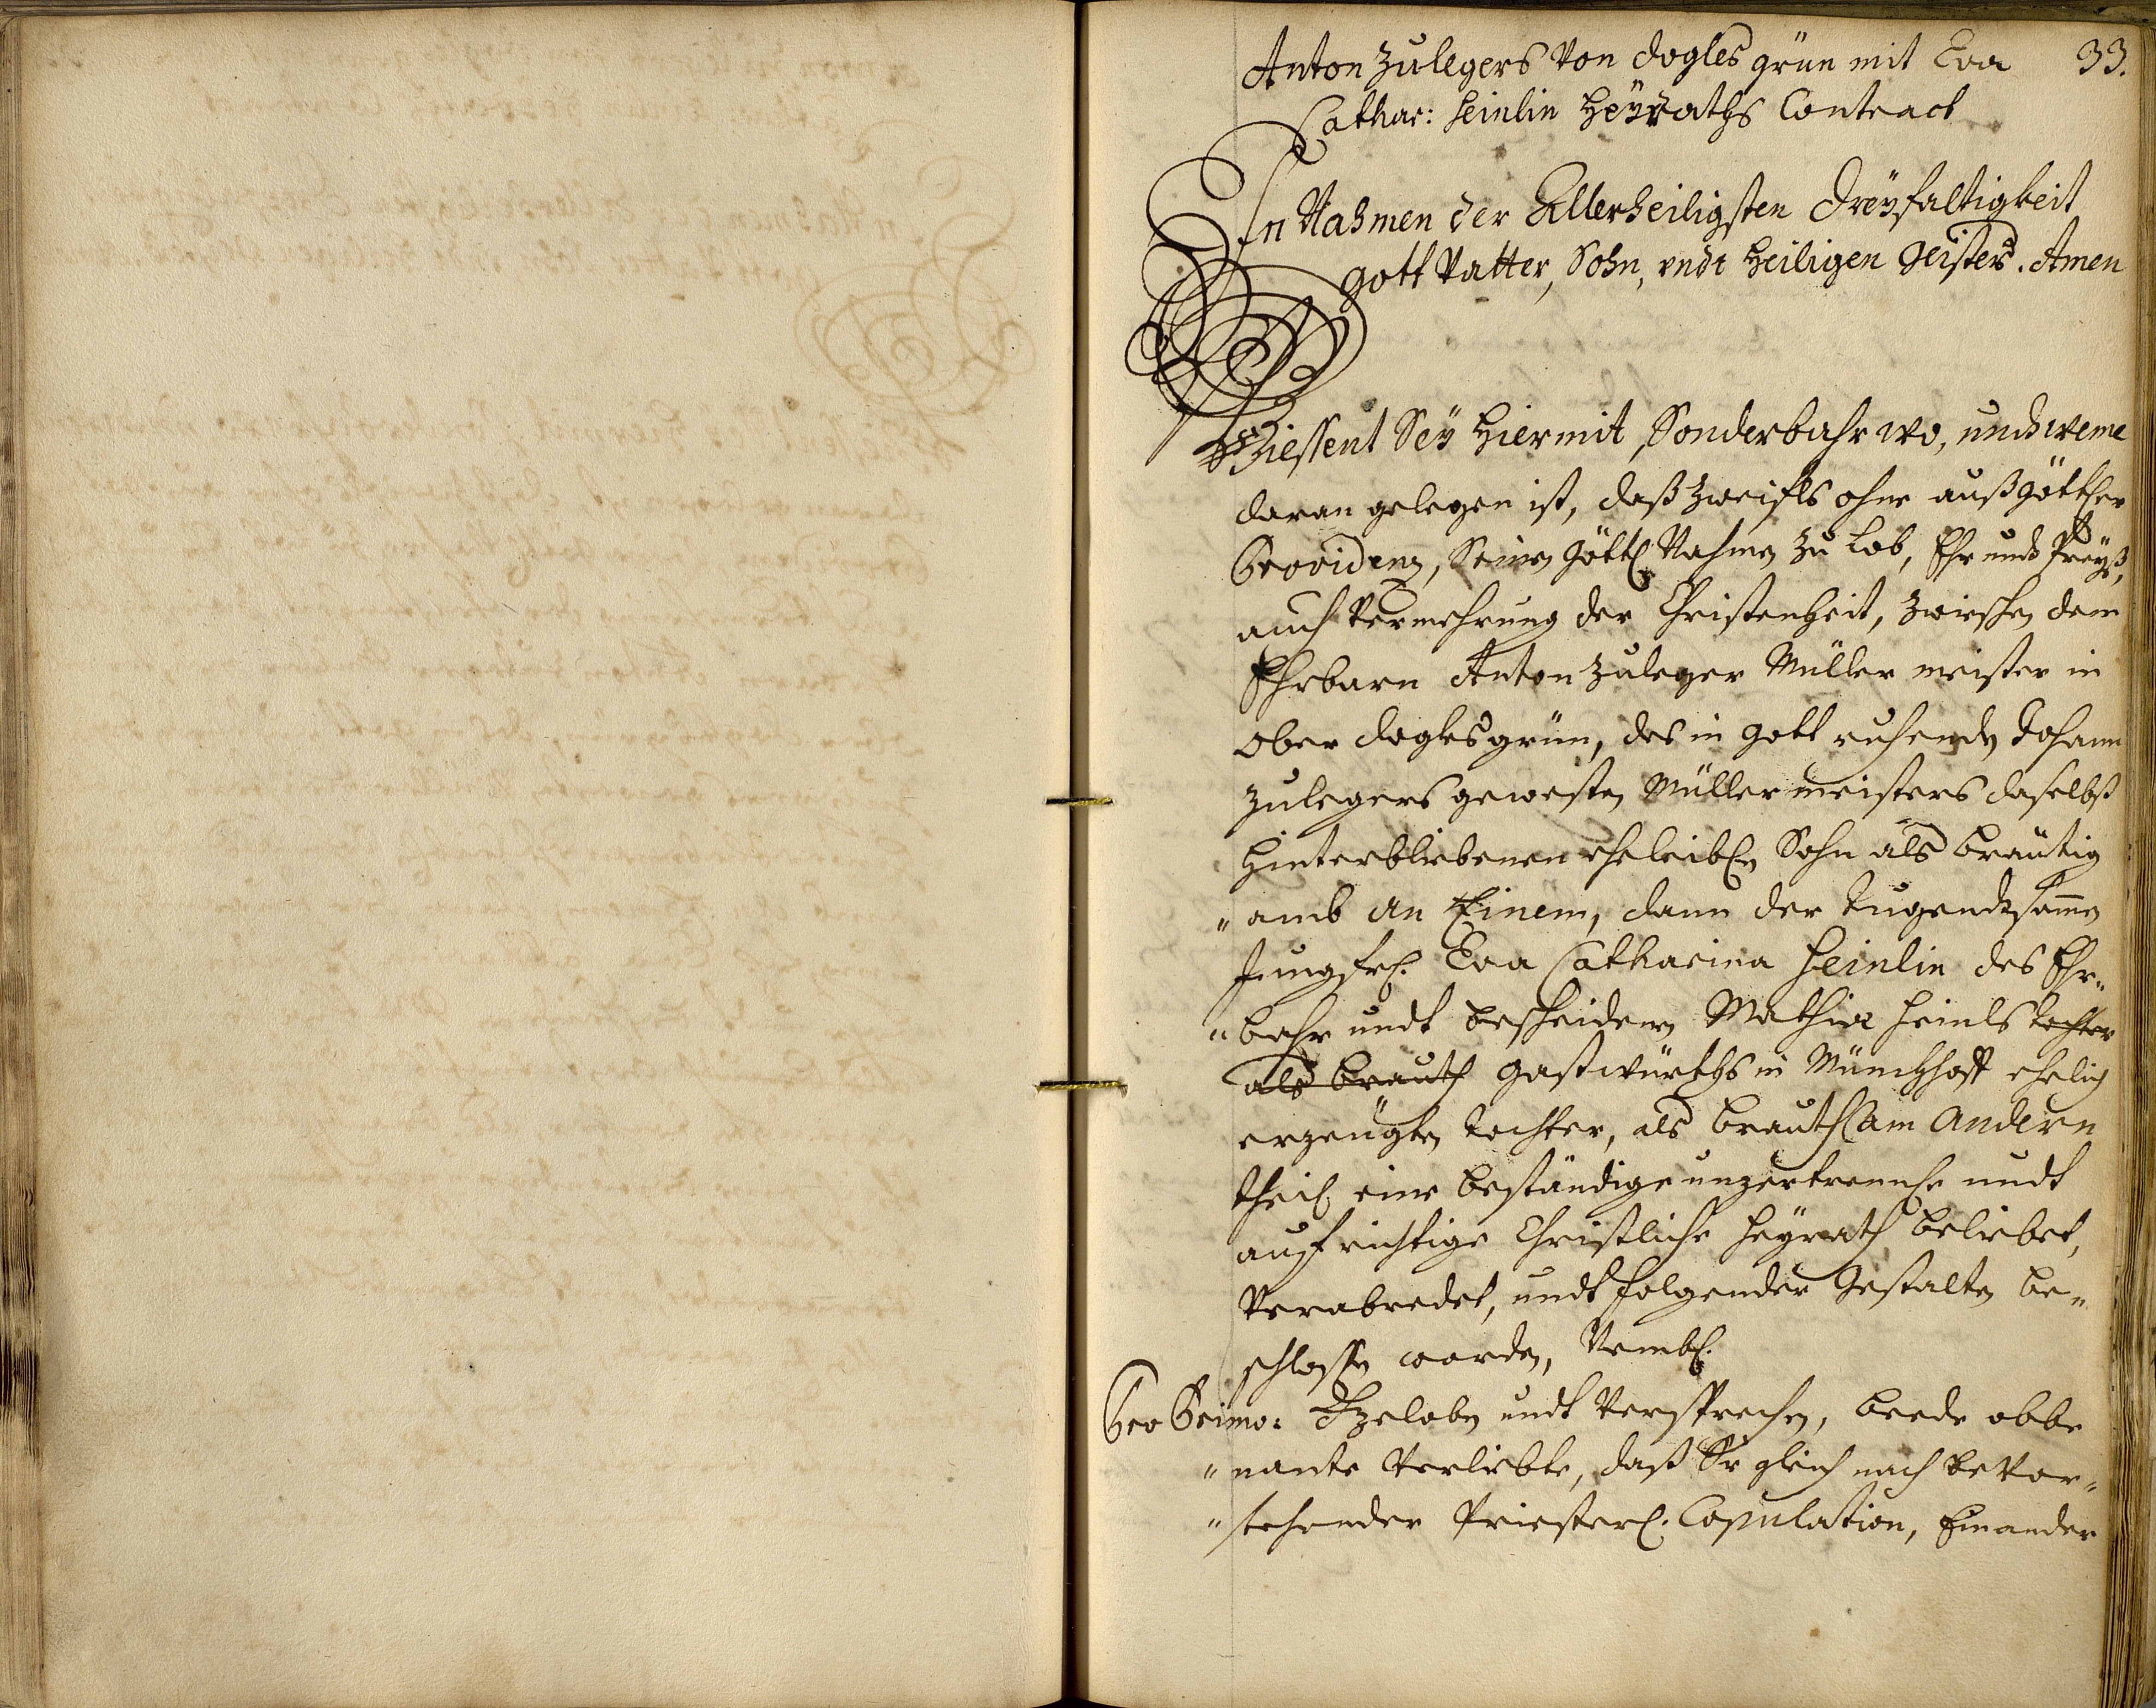 33.
Anton Zulegers von Dogles grün mit Eva
Cathar: Heinlin Heÿraths Contract
In Nahmen der Allerheiligsten Dreÿfaltigkeit
Gott Vatter, Sohn, undt Heiligen Geistes. Amen
Wiessent Seÿ Hiermit, Sonderbahr wo, undt weme
daran gelegen ist, daß Zweifls ohne auß göttler
Providenz, Seinen göttl Nahmen zu Lob, Ehr undt Preÿß,
auch Vermehrung der Christenheit, zwischen dem
Ehrbarn Anton Zuleger Müller meister in
Ober doglesgrün, des in Gott ruhenden Johann
Zulegers gewesten Müllermeisters daselbst
Hinterbliebenen eheleibln Sohn als Bräutig
„amb an Einem, dann der Tugendtsamen
Jungfrl. Eva Catharina Heinlin des Ehr„
„bahr undt bescheidenen Mathia Heinls Tochter
als Brauth Gastwürths in Münchhoff ehelich
erzeugten Tochter, als Brauth am Andern
theil eine beständige unzertrennle undt
aufrichtige Christliche Heÿrath beliebet,
Verabredet, undt folgender Gestalten be„
schlossen worden, Nembl.
Pro Primo: Gzeloben undt Versprechen, beede obbe
„nante Verliebte, daß Sie gleich nach bevor„
„stehender Priesterl. Copulation, Einander